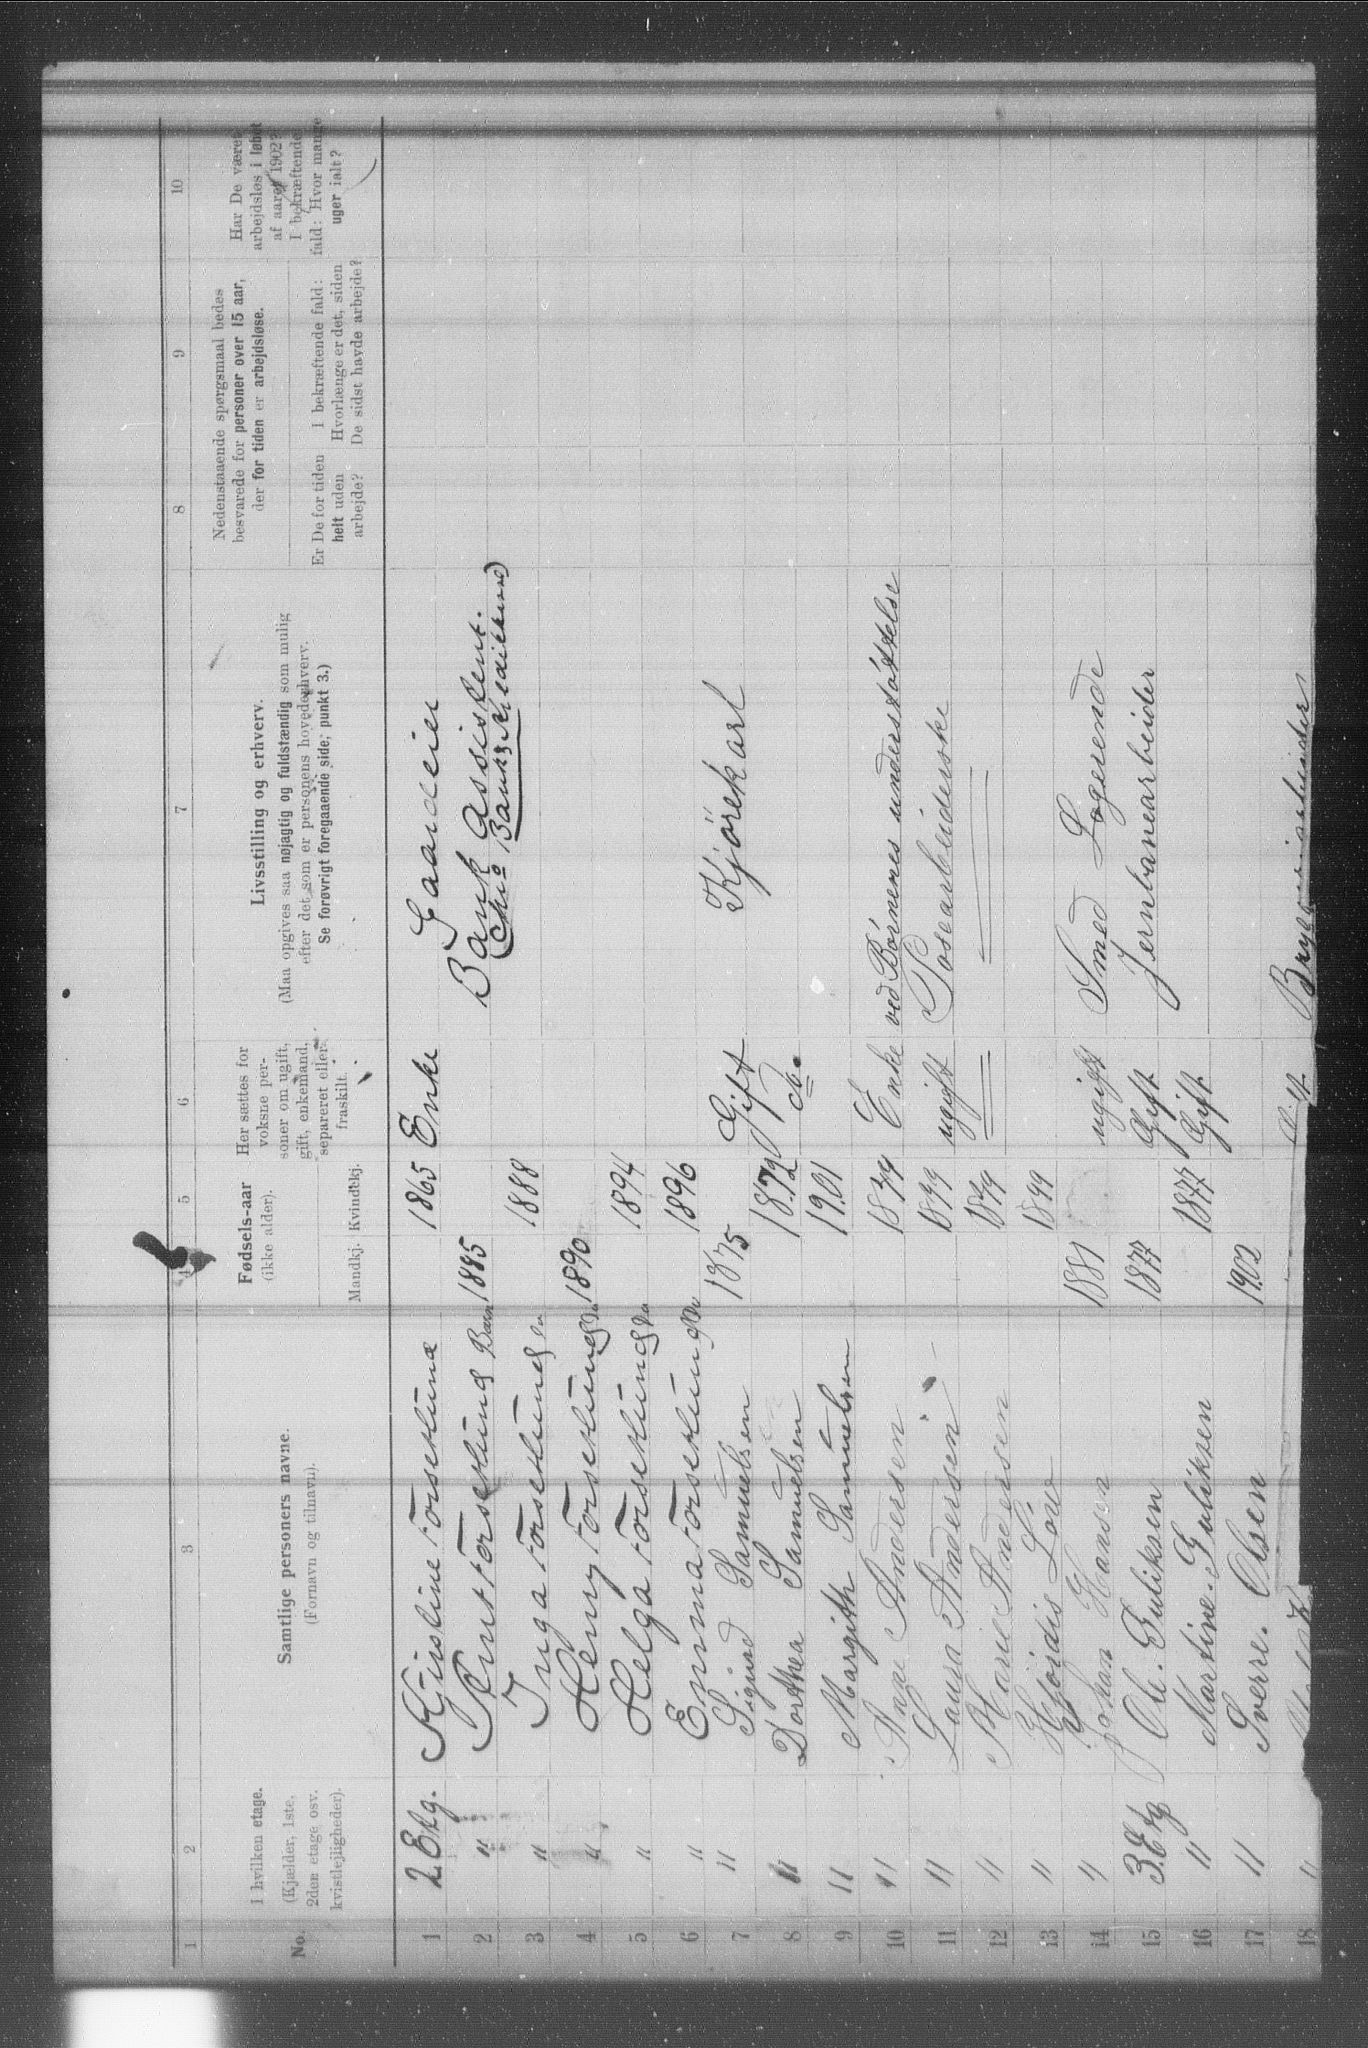 1 2 3 4 5 6 7 8 9 10
No.
I hvilken etage.
(Kjælder, 1ste,
2den etage osv.
kvistlejligheder).
Samtlige personers navne.
(Fornavn og tilnavn).
Fødsels-aar
(ikke alder).
Mandkj. Kvindekj.
Her sættes for
voksne per-
soner om ugift,
gift, enkemand,
separeret eller
fraskilt.
Livsstilling og erhverv.
(Maa opgives saa nøjagtig og fuldstændig som mulig
efter det som er personens hovederhverv.
Se forøvrigt foregaaende side, punkt 3.)
Nedenstaaende spørgsmaal bedes
besvarede for personer over 15 aar,
der for tiden er arbejdsløse.
Er De for tiden
helt uden
arbejde?
I bekræftende fald:
Hvorlænge er det, siden
De sidst havde arbejde?
Har De været
arbejdsløs i løbet
af aaret 1902?
I bekræftende
fald: Hvor mange
uger ialt?
1 2 Etg. Kristine Torseklund 1865 Enke Gaardeier
2 " Knut Torseklund Barn 1885 Bank Assistent.
(Chra Bank
3 " Inga Torseklund 1888
4 " Henry Torseklund 1890
5 " Helga Torseklund 1894
6 " Emma Torseklund 1896
7 " Sigurd Samuelsen 1875 Gift Kjørekarl
8 " Dorthea Samuelsen 1872 Do.
9 " Margith Samuelsen 1901
10 " Anne Andersen Enke ved Børnenes understøttelse
11 " Laura Andersen ugift Posearbeiderske
12 " Marie Andersen 1879
13 " Hjørdis Löw 1899
14 " Johan Hansen 1881 ugift Smed Logerende
15 3. Etg Ole Guliksen 1877 Gift Jernbanearbeider
16 " Martine Guliksen 1877 Gift
17 " Sverre Olsen 1902
18 "